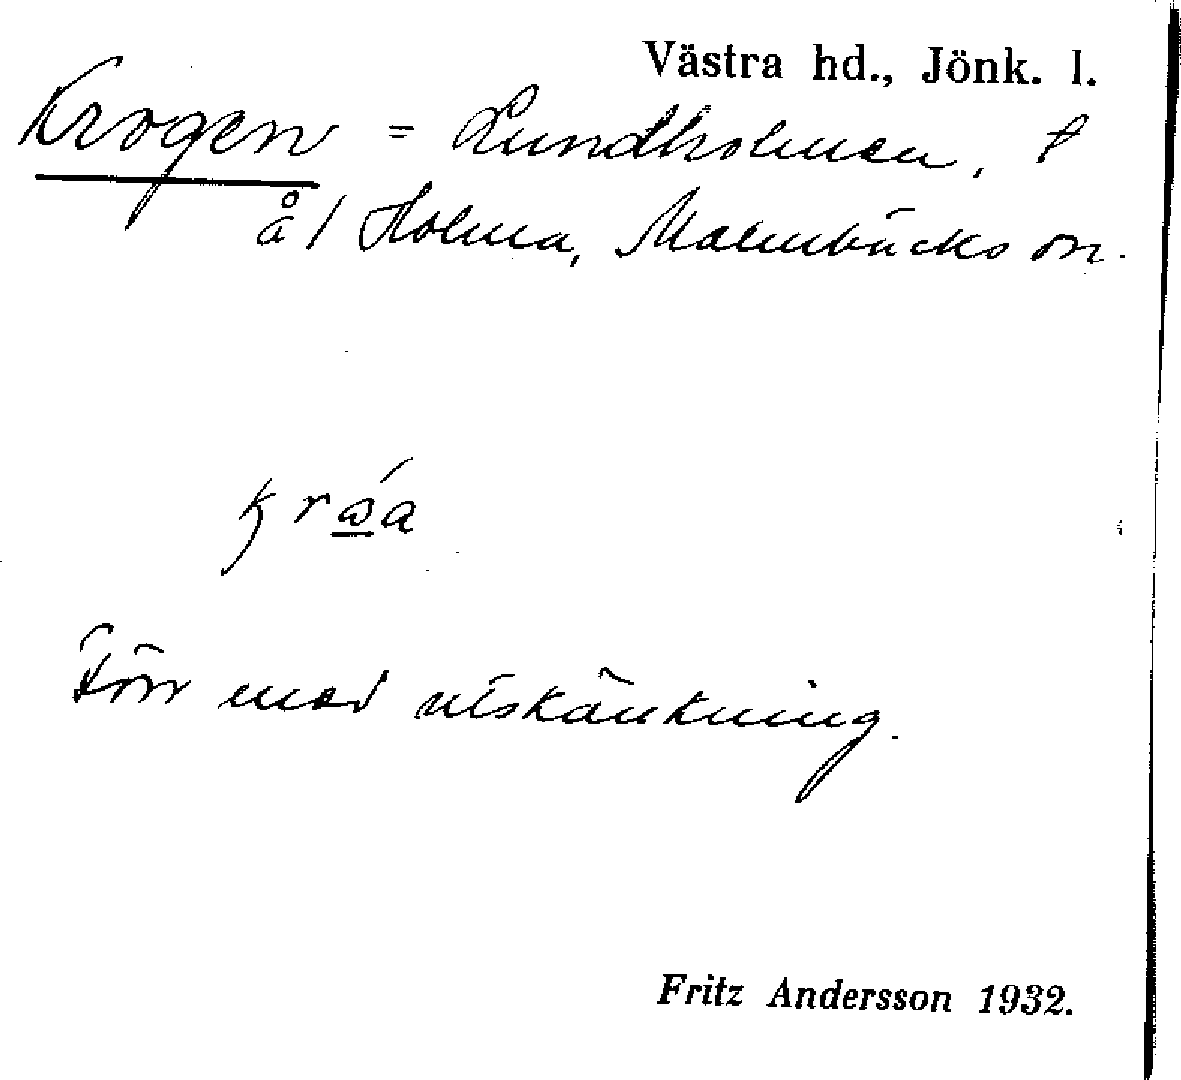 Västra hd., Jönk. l.
Krogen = Lundholmen, t
å/ Holma, Malmbäcks sn.
Förr med utskänkning.
Fritz Andersson 1932.